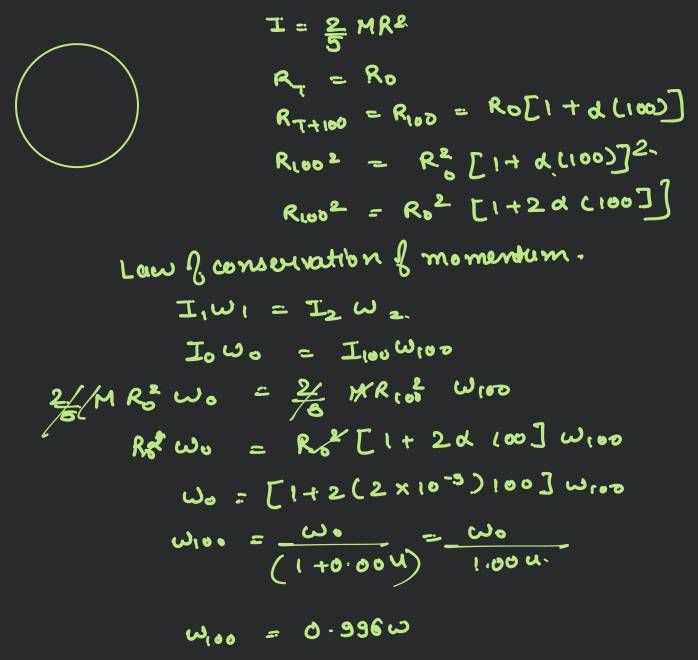 I = 2/5 MR²
R_T = R₀
R_T+100 = R₁₀₀ = R₀[1 + α(100)]
R₁₀₀² = R₀² [1 + α(100)]²
R₁₀₀² = R₀² [1 + 2α(100]]
Law of conservation of momentum.
I₁ω₁ = I₂ω₂
I₀ω₀ = I₁₀₀ω₁₀₀
2/5 M R₀² ω₀ = 2/5 M R₁₀₀² ω₁₀₀
R₀² ω₀ = R₀² [1 + 2α 100] ω₁₀₀
ω₀ = [1 + 2(2×10⁻⁵)100] ω₁₀₀
ω₁₀₀ = ω₀/(1+0.004) = ω₀/1.004.
ω₁₀₀ = 0.996ω